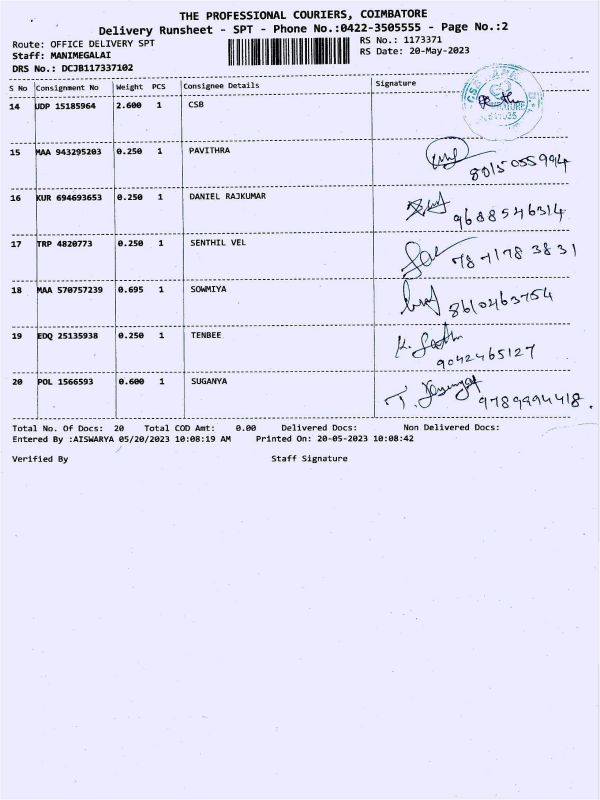 THE PROFESSIONAL COURIERS, COIMBATORE
Delivery Runsheet - SPT - Phone No.:0422-3505555 - Page No.:2
Route: OFFICE DELIVERY SPT RS No.: 1173371
Staff: MANIMEGALAI RS Date: 20-May-2023
DRS No.: DCJB117337102
S No Consignment No Weight PCS Consignee Details Signature
14 UDP 15185964 2.600 1 CSB
15 MAA 943295203 0.250 1 PAVITHRA 8015055994
16 KUR 694693653 0.250 1 DANIEL RAJKUMAR 9688546314
17 TRP 4820773 0.250 1 SENTHIL VEL 78711783831
18 MAA 570757239 0.695 1 SOWMIYA 8610463754
19 EDQ 25135938 0.250 1 TENBEE 9042465127
20 POL 1566593 0.600 1 SUGANYA 9789994418.
Total No. Of Docs: 20 Total COD Amt: 0.00 Delivered Docs: Non Delivered Docs:
Entered By :AISWARYA 05/20/2023 10:08:19 AM Printed On: 20-05-2023 10:08:42
Verified By Staff Signature